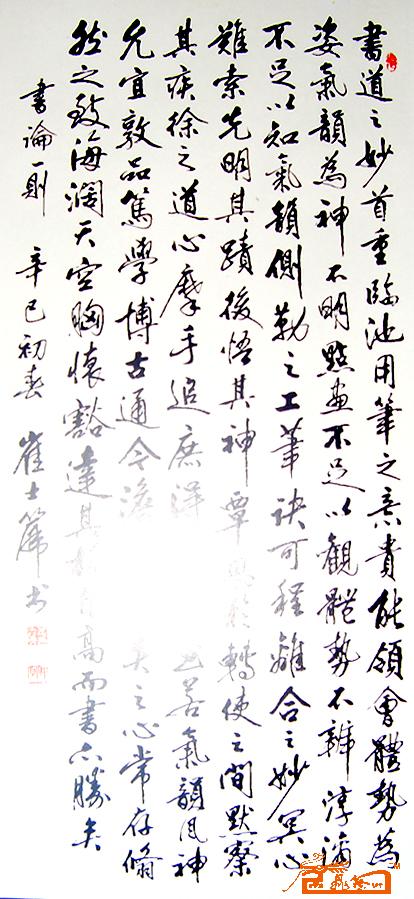 書道之妙首重臨池用筆之意貴能領會體勢為
姿氣韻為神不明點畫不足以觀體勢不辨淳漓
不足以知氣韻側勒之工筆訣可程離合之妙冥心
難索先明其蹟後悟其神覃 於轉使之間默察
其疾徐之道心摩手追庶 若氣韻風神
尤宜敦品篤學博古通今澹 之心常存翛
然之致海濶天空胸懷豁達其 自高而書亦勝矣
書論一則 辛巳初春 崔士篪书